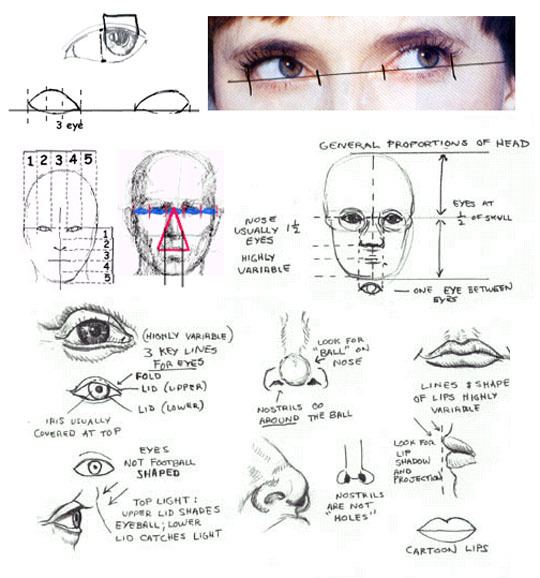 3 eye
1 2 3 4 5
1
2
3
4
5
GENERAL PROPORTIONS OF HEAD
EYES AT
1/2 OF SKULL
NOSE
USUALLY 1 1/2
EYES
HIGHLY
VARIABLE
ONE EYE BETWEEN
EYES
(HIGHLY VARIABLE)
3 KEY LINES
FOR EYES
FOLD
LID (UPPER)
LID (LOWER)
IRIS USUALLY
COVERED AT TOP
LOOK FOR
"BALL" ON
NOSE
NOSTRILS GO
AROUND THE BALL
LINES & SHAPE
OF LIPS HIGHLY
VARIABLE
EYES
NOT FOOTBALL
SHAPED
TOP LIGHT:
UPPER LID SHADES
EYEBALL; LOWER
LID CATCHES LIGHT
NOSTRILS
ARE NOT
"HOLES"
LOOK FOR
LIP
SHADOW
AND
PROJECTION
CARTOON LIPS